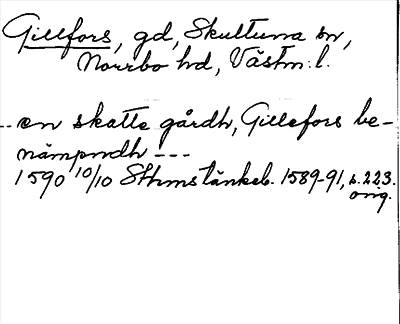 Gillfors, gd, Skultuna sn,
Norrbo hd, Västm. l.
... en skatte gårdh, Gillefors be-
nämpndh ---
1590 10/10 Sthms tänkeb. 1589-91, s. 223.
orig.